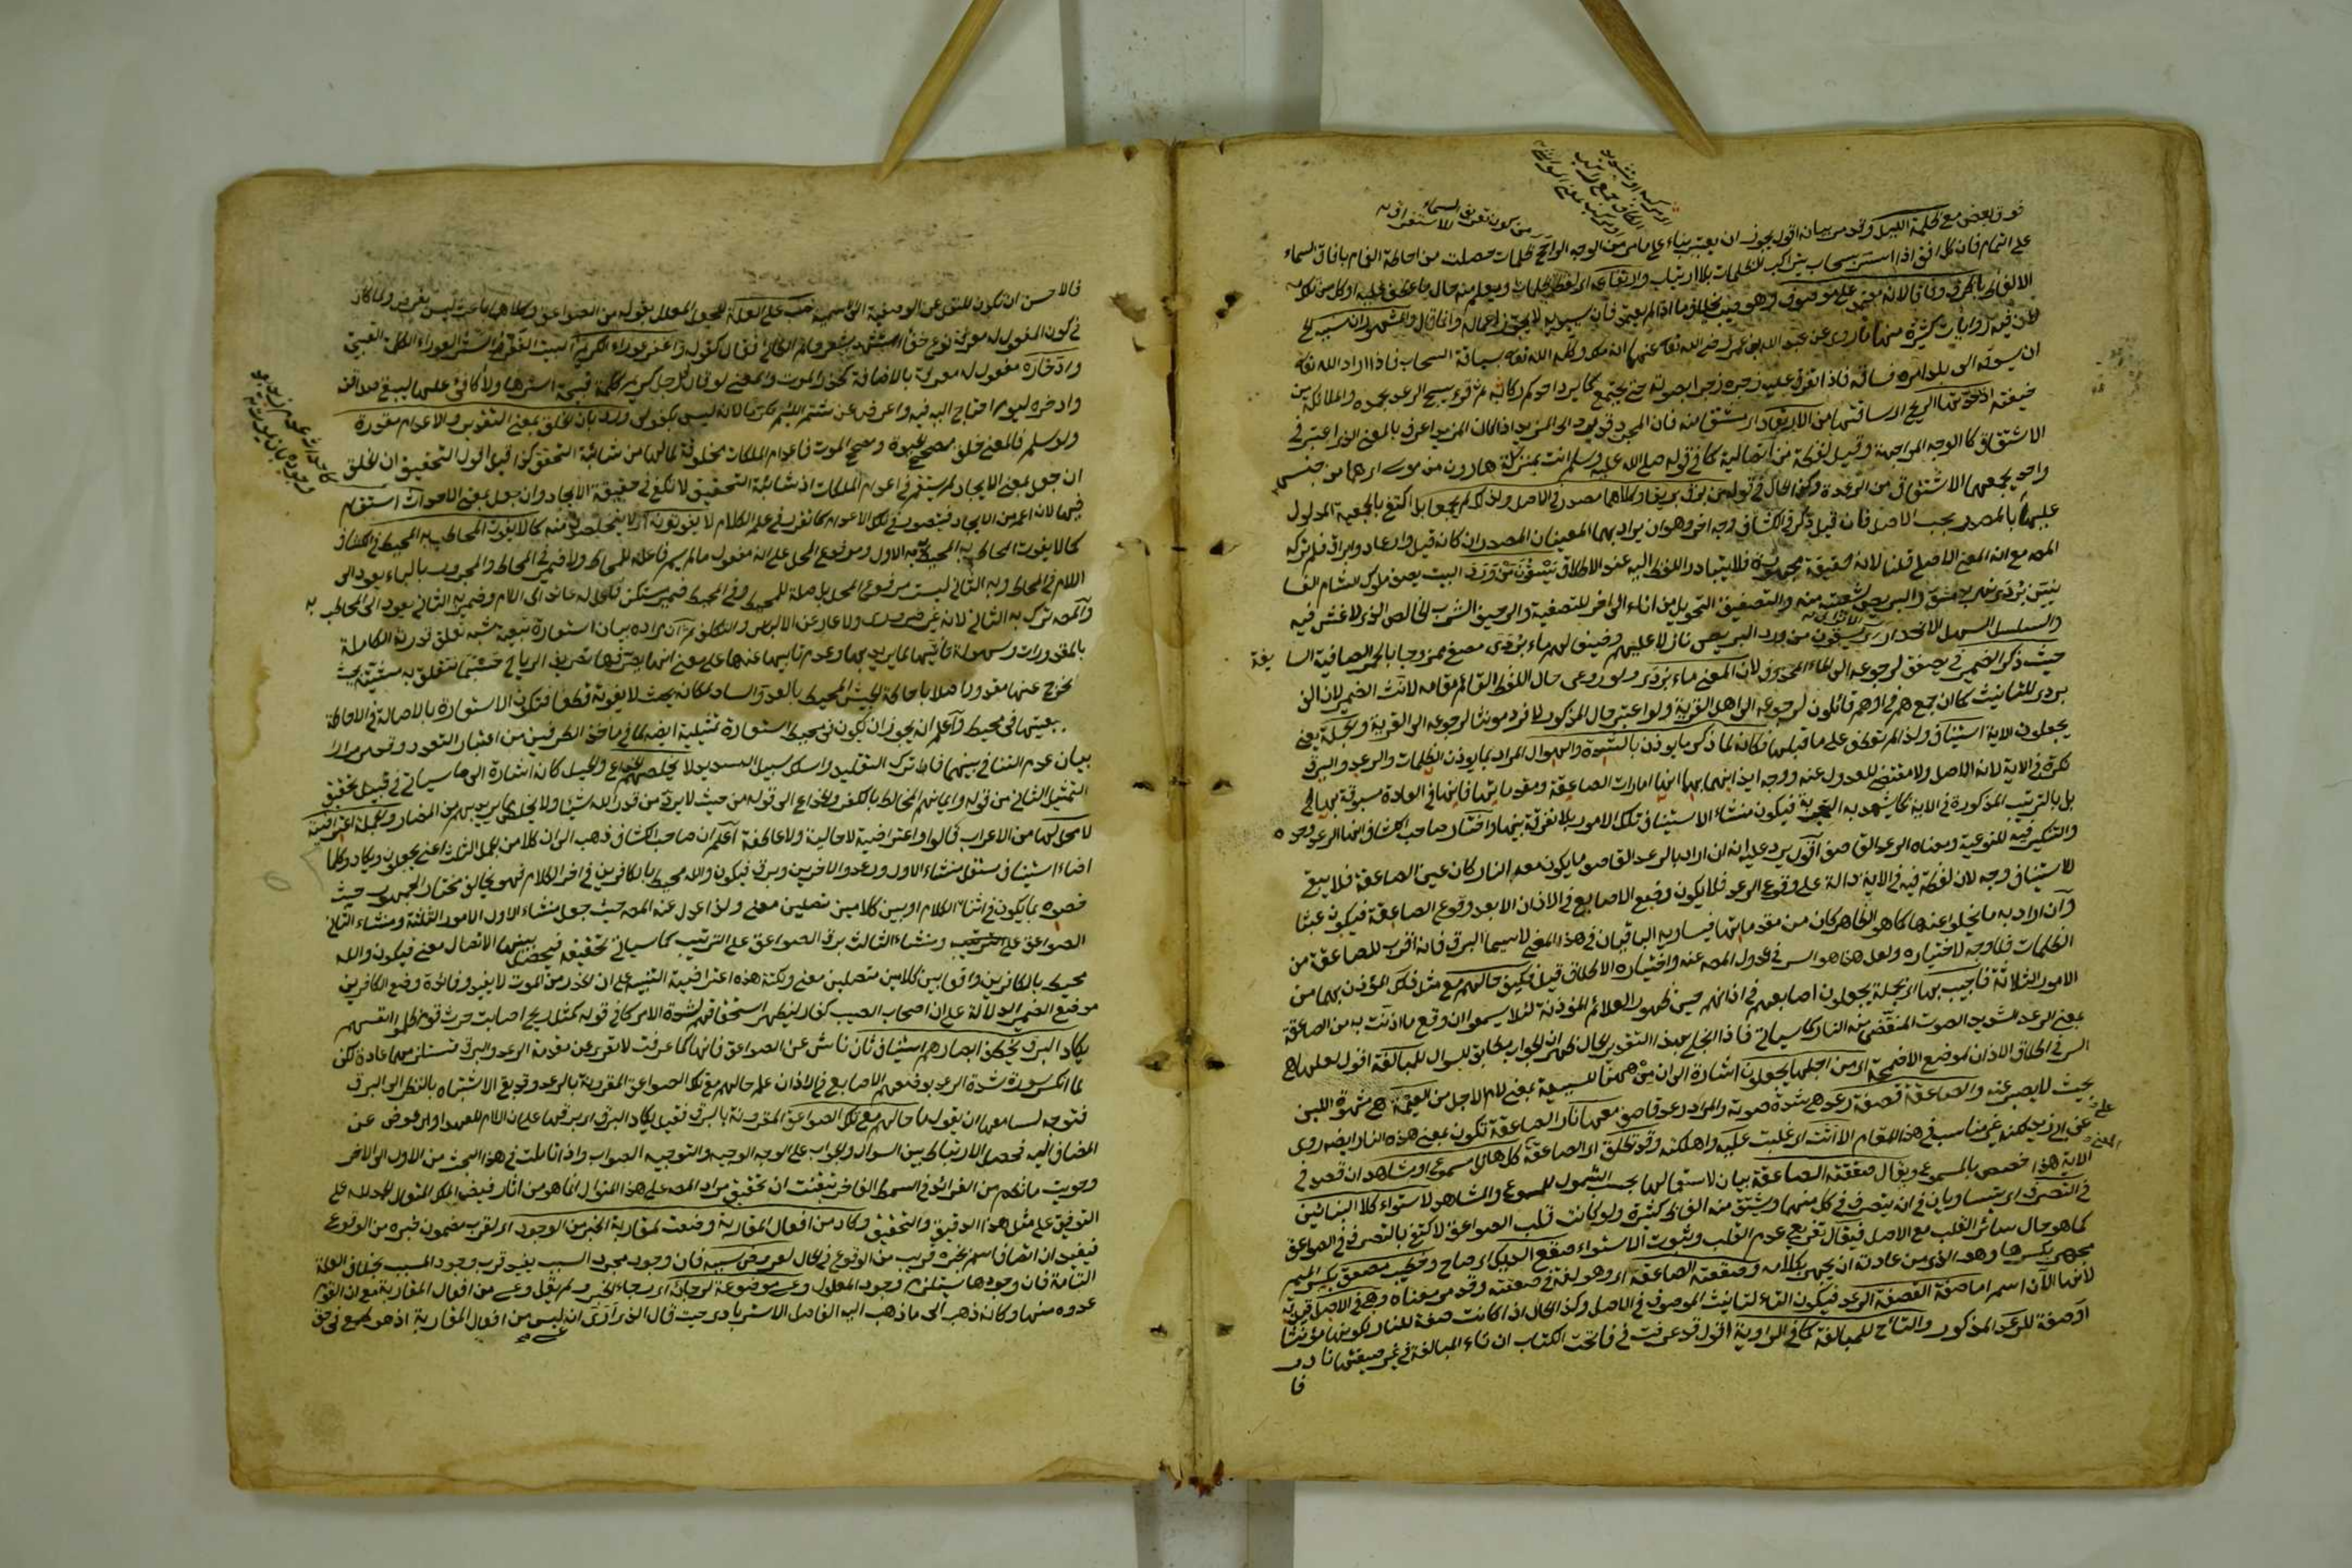 فوق بعض مع ظلمة الليل وقد مر بيانه اقول يجوز ان يعتبر بناء على ما مر من الوجه الراجح ظلمات حصلت من احاطة الغمام بافاق السماء
على التمام فان كل افق اذا استتر بسحاب يتراكب الظلمات بلا ارتياب وارتفاعه اى لفظ ظلمات ويعلم منه حال ما عطف عليه
الظرف وفاقا لانه معتمد على موصوف وهو صيب بخلاف ما اذا لم يعتمد فان سيبويه لا يجوز اعماله والمشهور ان سببه
فيه روايات كثيرة منها ما روى عن عبد الله بن عمر رضي الله تعا عنهما انه ملك وكله الله تعا بسياقة السحاب فاذا اراد الله تعا
ان يسوقه الى بلد امره فساقه فاذا تفرق عليه زجره بصوته حتى يجتمع كما يرد احدكم ركابه ثم قرء يسبح الرعد بحمده والملائكة من
خيفته اذا حدتها الريح اى ساقتها من الارتعاد اى مشتق منه فان المجرد قد يرد الى المزيد اذا كان المزيد اعرف بالمعنى الذى اعتبر في
الاشتقاق كالوجه من المواجهة وقيل لفظة من اتصالية كما في قوله صلى الله عليه وسلم انت بمنزلة هارون من موسى اى هما من جنس
واحد يجمعهما الاشتقاق من الرعدة وكذا الحال في قوله من برق بريقا وكلاهما مصدر في الاصل ولذلك لم يجمعا بل اكتفى بالجمعية المدلول
عليها بالمصدر بحسب الاصل فان قيل ذكر في الكشاف وجه اخر وهو ان يراد بهما المعنيان المصدريان كانه قيل وارعاد وابراق فلم تركه
المص مع انه المعنى الاصلي قلنا لانه حقيقة مهجورة فلا يتبادر اللفظ اليه عند الاطلاق يسقون من ورد البيت يصف ملوك الشام
بردى نهر بدمشق والبريص شعبة منه والتصفيق التحويل من اناء الى اخر للتصفية والرحيق الشراب الخالص الذى لا غش فيه
والسلسل السهل الانحدار اى يسقون من ورد البريص نازلا عليهم وضيفا لهم ماء بردى مصفى ممزوجا بالخمر الصافية السا يغة
حيث ذكر الضمير في يصفق لرجوعه الى الماء المحذوف لان المعنى ماء بردى ولو روعى حال اللفظ القائم مقامه لانث الضمير لان الف
بردى للتانيث كما ان جمع هم في اوهم قائلون لرجوعه الى اهل القرية ولو اعتبر حال المذكور لافرد مونثا لرجوعه الى القرية وجملة يعني
يجعلون الاية استيناف ولذا لم تعطف على ما قبلها فكانه لما ذكر ما يوذن بالشدة والهول المراد بما يوذن الظلمات والرعد والبرق
نكرة في الاية لانه الاصل ولا مقتضى للعدول عنه ووجه ايذانها بها انها امارات الصاعقة ومقدماتها فانها في العادة مسبوقة بها
بل بالترتيب المذكورة في الاية كما يشهد به التجربة فيكون منشاء الاستيناف تلك الامور بلا تفرقة بينها واختار صاحب الكشاف انها الرعد وحده
والتنكير فيه للنوعية ومعناه الرعد القاصف اقول يرد عليه انه ان اراد بالرعد القاصف ما يكون معه النار كان عين الصاعقة فلا يبقى
للاستيناف وجه لان لفظة فيه في الاية دالة على وقوع الرعد فلا يكون وضع الاصابع في الاذان الا بعد وقوع الصاعقة فيكون عبثا
وان اراد به ما يخلو عنها كما هو الظاهر كان من مقدماتها فيساويه الباقيان في هذا المعنى لا سيما البرق فانه اقرب للصاعقة من
الظلمات فلا وجه لاختياره ولعل هذا هو السر في عدول المص عنه واختياره الاطلاق قيل فكيف حالهم مع مثل ذلك الموذن بهما من
الامور الثلاثة فاجيب بها اى بجملة يجعلون اصابعهم في اذانهم حين ظهور العلائم الموذنة لئلا يسمعوا ان وقع ما اذنت به من الصاعقة
بمعنى الرعد الشديد الصوت المنقض منه النار كما سياتي فاذا انجلى بهذا التقدير الحال ظهر ان الجواب مطابق للسوال للمبالغة اقول لعلها هي
السر في اطلاق الاذان لموضع الاصمخة اى من اجلها يجعلون اشارة الى ان من ههنا للسببية بمعنى لام الاجل من العيمة هي شهوة اللبن
بحيث لا يصبر عنه والصاعقة قصفة رعد هي شدة صوته والمراد رعد قاصف معها نار الصاعقة تكون بمعنى هذه النار ايضا روى
غير مناسب في هذا المقام الا اتت اى غلبت عليه واهلكته وقد تطلق اى الصاعقة كل هائل مسموع او مشاهد ان قصد في
الاية هذا خصص بالمسموع ويقال صعقته الصاعقة بيان لاستعمالها بحسب الشمول للمسموع والمشاهد لاستواء كلا البنائين
في التصرف اى يتساويان في ان يتصرف في كل منهما ويشتق منه الفاظ كثيرة ولو كانت قلب الصواعق لاكتفى بالتصرف في الصواعق
كما هو حال سائر القلب مع الاصل فيقال تفريع على عدم القلب وثبوت الاستواء صقع الديك اى صاح وخطيب مصقع بكسر الميم
مجهر بكسرها وهو الذى من عادته ان يجهر بكلامه وصقعته الصاعقة اى وهو لغة في صعقته وقد مر معناه وهي في الاصل قيد به
لانها الان اسم اما صفة القصفة الرعد فيكون التاء لتانيث الموصوف في الاصل وكذا الحال اذا كانت صفة للنار لكونها مؤنثا
او صفة للرعد المذكور والتاء للمبالغة كما في الراوية اقول قد عرفت في فاتحة الكتاب ان تاء المبالغة في غير صيغتها نادر
فا
فالاحسن ان تكون للنقل عن الوصفية الى الاسمية نصب على العلة للجعل المعلل بقوله من الصواعق وكلاهما باعث ليس بغرض ولما كان
في كون المفعول له معرفة نوع خفاء استشهد بشعر حاتم الطائي فقال كقوله واغفر عوراء الكريم البيت الغفر الستر العوراء الكلمة القبيحة
وادخاره مفعول له معرفة بالاضافة كحذر الموت والمعنى لو قال رجل كريم كلمة قبيحة استرها ولا اكافئ عليها ليبقى صداقته
وادخره ليوم احتاج اليه فيه واعرض عن شتم اللئيم تكرما لانه ليس بكفو لي ورد بان الخلق بمعنى التقدير والاعدام مقدرة
ولو سلم فالمعنى خلق مصحح الحيوة ومصحح الموت فاعدام الملكات مخلوقة لما لها من شائبة التحقق كذا قيل اقول التحقيق ان الخلق
ان جعل بمعنى الايجاد لم يستقم في اعدام الملكات اذ شائبة التحقيق لا تكفي في حقيقة الايجاد وان جعل بمعنى الاحداث استقام
فيها لانه اعم من الايجاد فيتصور في تلك الاعدام كما تقرر في علم الكلام لا يفوتونه اى لا يتخلصون منه كما لا يفوت المحاط به المحيط في الكشاف
كما لا يفوت المحاط به المحيط به الاول مرفوع المحل على انه مفعول ما لم يسم فاعله للمحاط ولا ضمير في المحاط والمجرور بالباء يعود الى
اللام في المحاط وبه الثاني ليست مرفوع المحل بل صلة للمحيط وفي المحيط ضمير مستكن فاعل له عائد الى اللام وضمير به الثاني يعود الى المحاط به
والمص ترك به الثاني لانه غير ضرورى ولا عار عن الالباس والتكلف ثم ان مراده بيان استعارة تبعية شبه تعلق قدرته الكاملة
بالمقدورات وسهولة تأتيها لما يريد بها وعدم تابيها عنها على معنى انها يصرفها تصريف الرياح حسبما تتعلق به مشيته بحيث
لا يخرج عنها مقدور اصلا باحاطة الجيش المحيط بالعدو السادة مكانه بحيث لا يفوته قطعا فتكون الاستعارة بالاصالة في الاحاطة
بتبعيتها في محيط واعلم انه يجوز ان يكون في محيط استعارة تمثيلية ايضا لما في ماخذ الطرفين من اعتبار التعدد وقد مر مرارا
بيان عدم التنافي بينهما فاطرح ترك التقليد واسلك سبيل التسديد لا يخلصهم الخداع والحيل كانه اشارة الى ما سياتي في قبيل تحقيق
التمثيل الثاني من قوله وايمانهم المخالط بالكفر والخداع الى قوله من حيث لا يرد من قدر الله شيئا ولا يخلص مما يريد بهم من المضار والجملة اعتراضية
لا محل لها من الاعراب قالوا واعتراضية لا حالية ولا عاطفة اعلم ان صاحب الكشاف ذهب الى ان كلا من الجمل الثلث اعنى يجعلون ويكاد وكلما
اضاء استيناف مستقل منشاء الاول ورعد والاخرين وبرق فيكون والله محيط بالكافرين في اخر الكلام فهو يخالف مختار الجمهور حيث
خصوه بما يكون في اثناء الكلام او بين كلامين متصلين معنى ولذا عدل عنه المص حيث جعل منشاء الاول الامور الثلثة ومنشاء الثاني
الصواعق على الترتيب ومنشاء الثالث برق الصواعق على الترتيب كما سياتي تحقيقه فيحصل بينهما الاتصال معنى فيكون والله
محيط بالكافرين واقعا بين كلامين متصلين معنى ونكتة هذه اعتراضية التنبيه على ان الحذر من الموت لا يفيد وفائدة وضع الكافرين
موضع الضمير الدلالة على ان اصحاب الصيب كفار ليظهر استحقاقهم شدة الامر كما في قوله كمثل ريح اصابت حرث قوم ظلموا انفسهم
يكاد البرق يخطف ابصارهم استيناف ثان ناش عن الصواعق فانها كما عرفت لا تعرى عن مقدمة الرعد والبرق تستلزمهما عادة لكن
لما انكسر سورة شدة الرعد بوضعهم الاصابع في الاذان علم حالهم مع تلك الصواعق المقرونة بالرعد وقد بقى الاشتباه بالنظر الى البرق
فتوجه لسامعها ان يقول ما حالهم مع تلك الصواعق المقرونة بالبرق فقيل يكاد البرق اى برقها على ان اللام للعهد او العوض عن
المضاف اليه فحصل الارتباط بين السوال والجواب على الوجه الوجيه والتوجيه الصواب واذا تاملت في هذا المبحث من الاول الى الاخر
وحويت ما نظم من الفرائد في السمط الفاخر تيقنت ان تحقيق مراد المص على هذا المنوال انما هو من اثار فيض الملك المتعال الحمد لله على
التوفيق على مثل هذا التدقيق والتحقيق وكاد من افعال المقاربة وضعت لمقاربة الخبر من الوجود اى لقرب مضمون خبره من الوقوع
فيفيد ان اتصاف اسم بخبره قريب من الوقوع في الحال لعروض سببه فان وجود مجرد السبب يفيد قرب وجود المسبب بخلاف العلة
التامة فان وجودها يستلزم وجود المعلول وعسى موضوعة لرجائه اى رجاء الخبر ولم يقل وعسى من افعال المقاربة مع ان القوم
عدوه منها وكانه ذهب الى ما ذهب اليه الفاضل الاسترابادى حيث قال الذى ارى ان عسى ليس من افعال المقاربة اذ هو طمع في حق